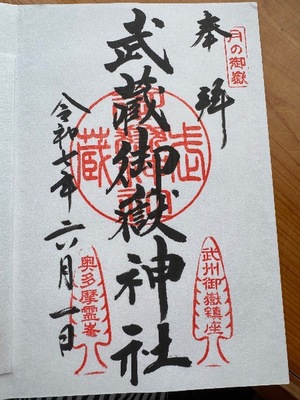 月の御嶽
奉拝
武蔵御嶽神社
令和七年六月一日
武州御嶽鎮座
奥多摩霊峯